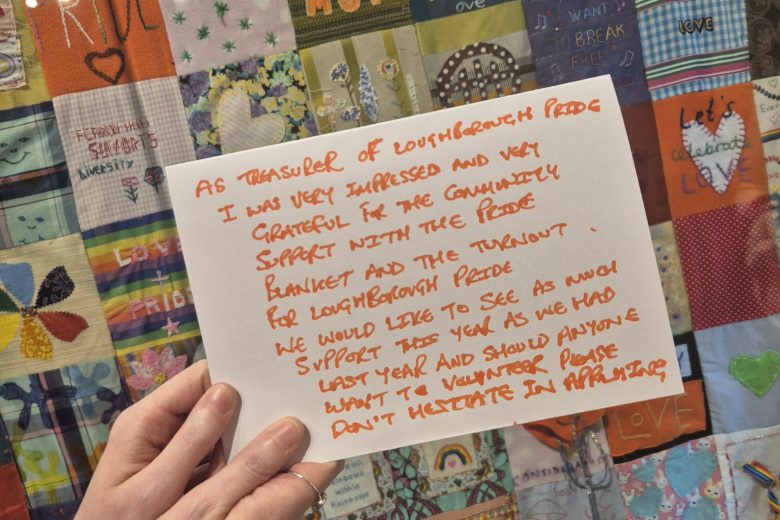 PRIDE
MOT
OVE
I WANT
TO BREAK
FREE
LOVE
SUPPORTS
DIVERSITY
Let's
celebrate
LOVE
LOVE
PRIDE
AS TREASURER OF LOUGHBOROUGH PRIDE
I WAS VERY IMPRESSED AND VERY
GRATEFUL FOR THE COMMUNITY
SUPPORT WITH THE PRIDE
BLANKET AND THE TURNOUT.
FOR LOUGHBOROUGH PRIDE
WE WOULD LIKE TO SEE AS MUCH
SUPPORT THIS YEAR AS WE HAD
LAST YEAR AND SHOULD ANYONE
WANT TO VOLUNTEER PLEASE
DON'T HESITATE IN APPLYING
LOVE
Rainbows
Within
Rainbows